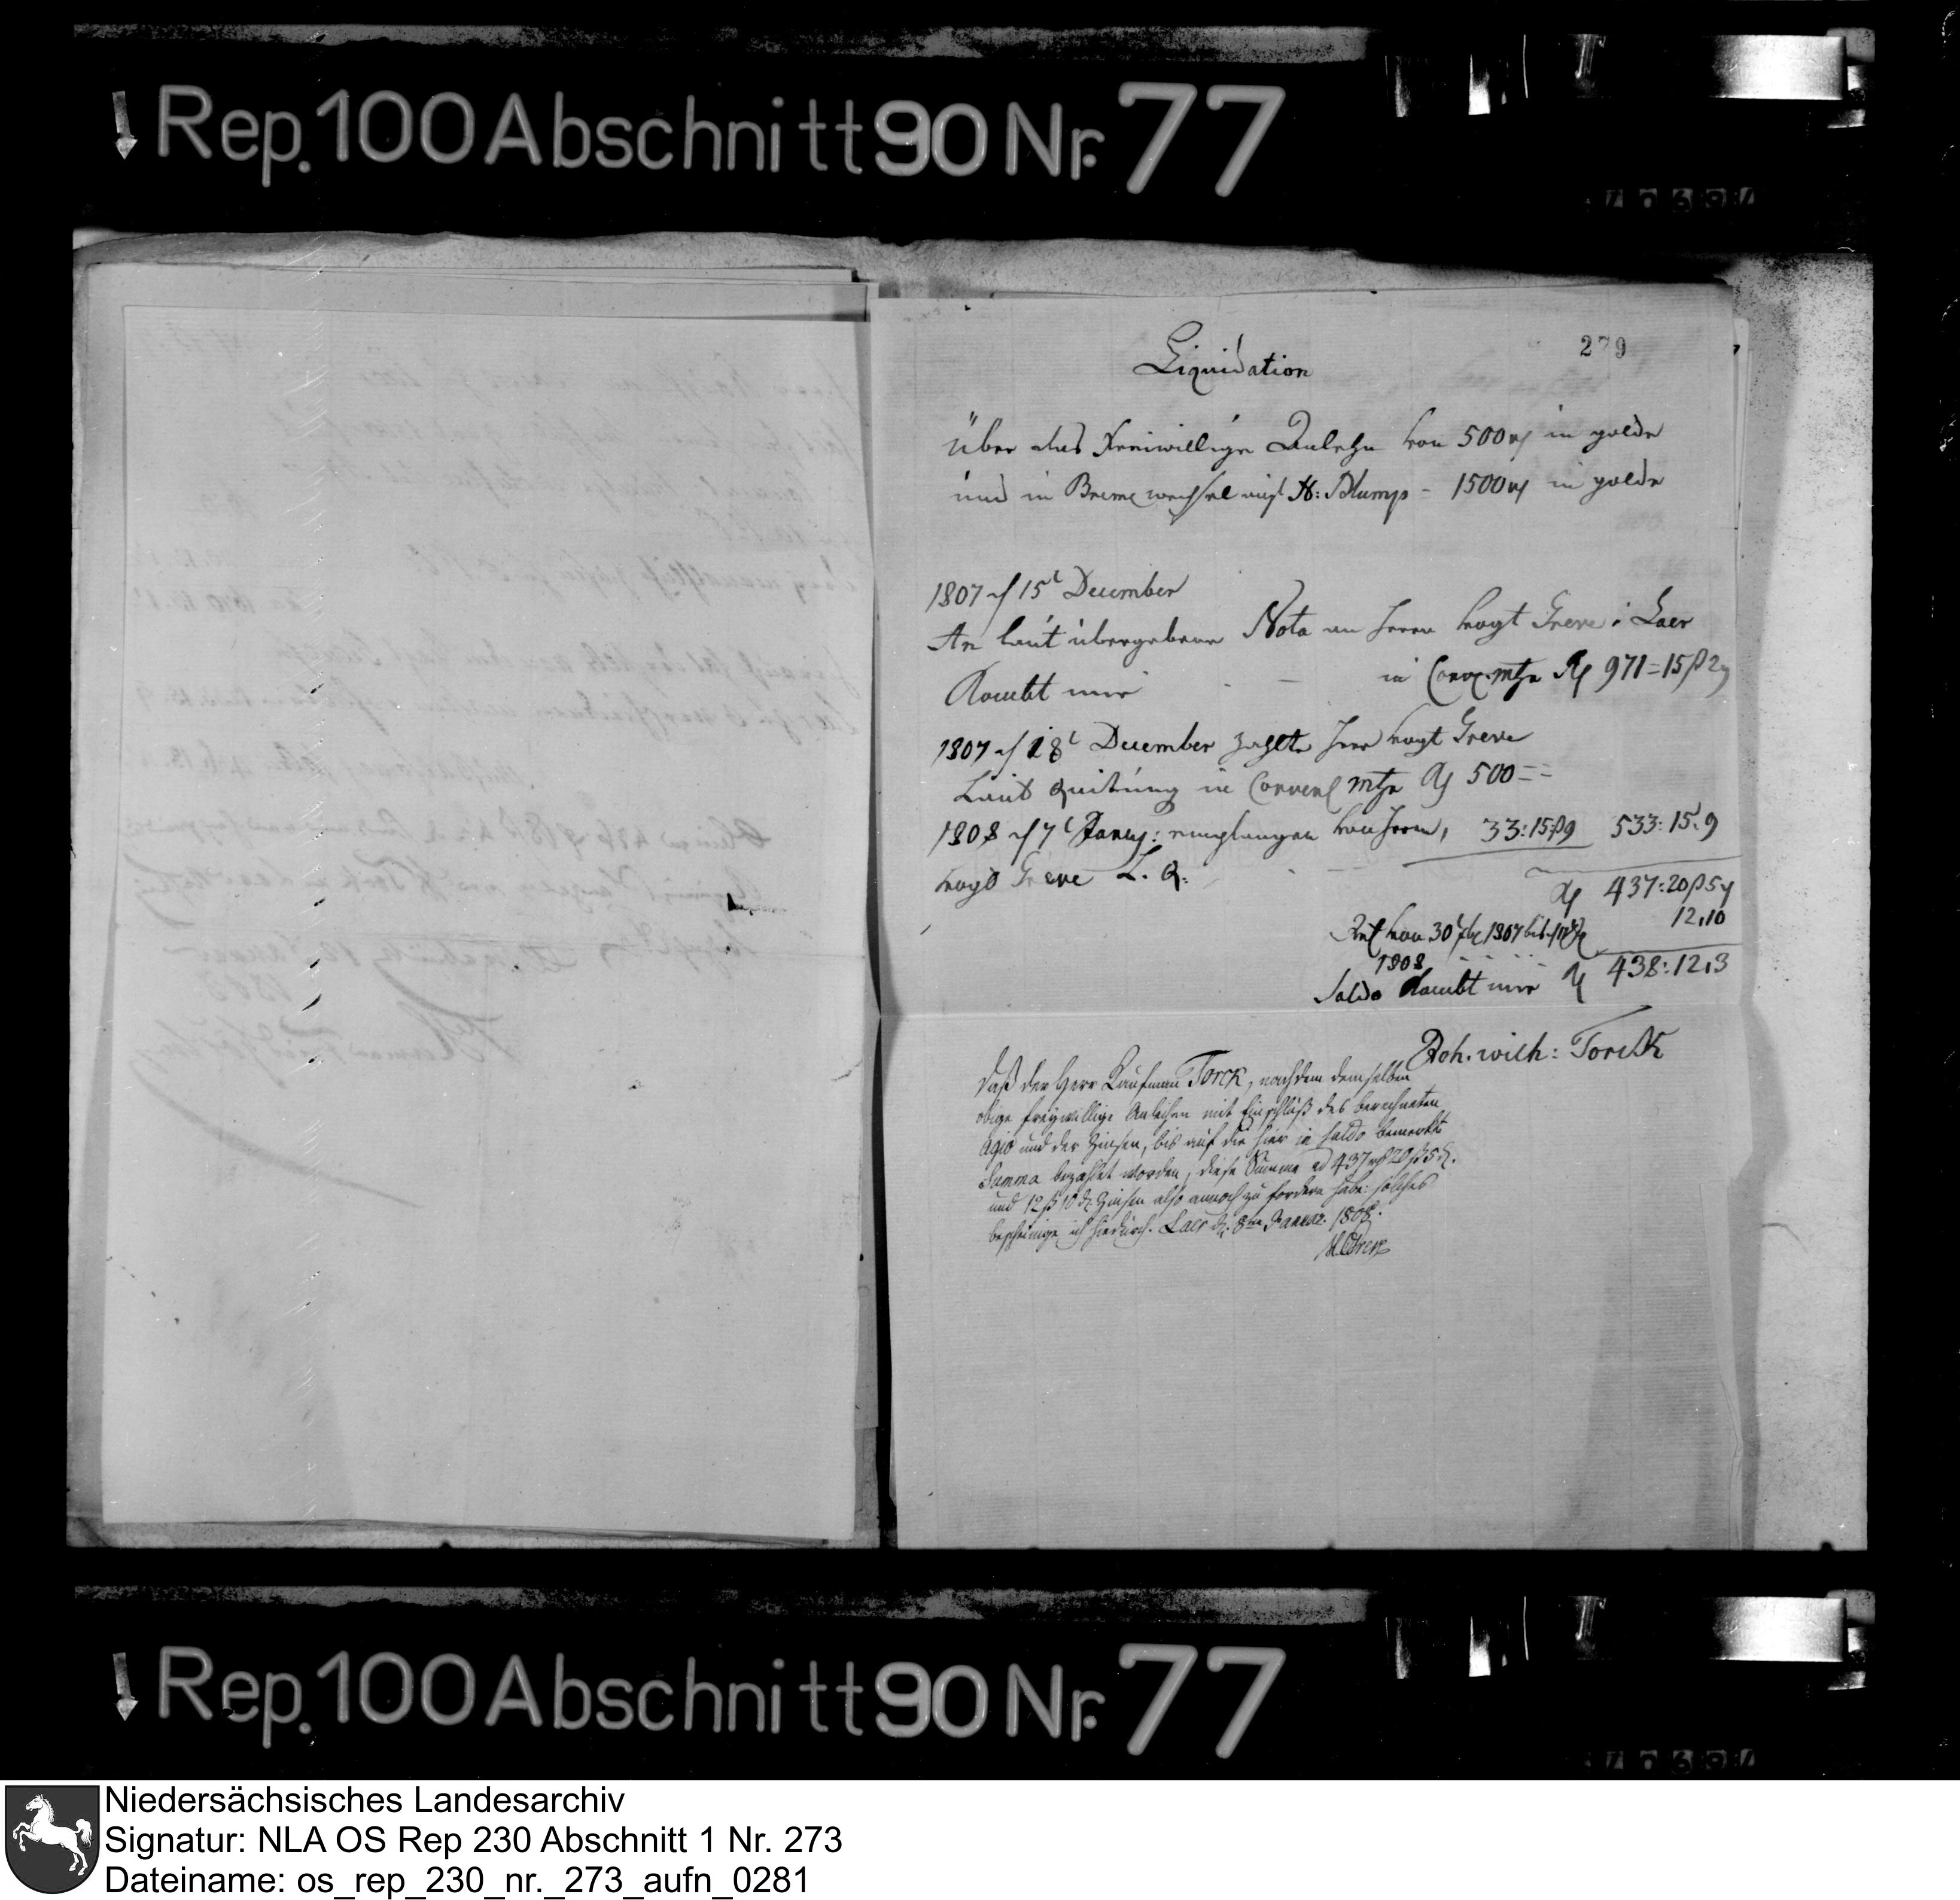 Rep. 100 Abschnitt 90 Nr. 77
279
Liquidation
Über das Freiwillige Anlehn von 500 rt in golde
und in Breme wechsel auf H: Plump - 1500 rt in golde
1807 15t December
An laut übergebene Nota an Herrn Vogt Greve i Laer
Kombt mir - - in Conv. mtze Rt 971=15ß 2
1807 18t December zahlte Herr Vogt Greve
Laut Quitung in Convent mtze Rt 500=-
1808 7t Janey: empfangen von Herrn, 33:15ß9 533:15.9
Vogt Greve L. Q:
Rt 437:20ß5
von 30t 1807 bis 12,10
1808
Saldo Kombt mir Rt 438:12,3
Joh. wilh: Torck
Daß der Herr Kaufmann Torck, nachdem demselben
obige freywillige Anleihen mit Einschluß des berechneten
Agio und der Zinsen, bis auf die hier in Saldo bemerkte
Summa bezahlet worden, diese Summe ad 437 rt 20ß5d.
und 12ß 10d Zinsen also annoch zu fordern habe: solches
bescheinige ich hiedurch. Laer d. 8ten Januar. 1808.
Greve
Rep. 100 Abschnitt 90 Nr. 77
Niedersächsisches Landesarchiv
Signatur: NLA OS Rep 230 Abschnitt 1 Nr. 273
Dateiname: os_rep_230_nr._273_aufn_0281